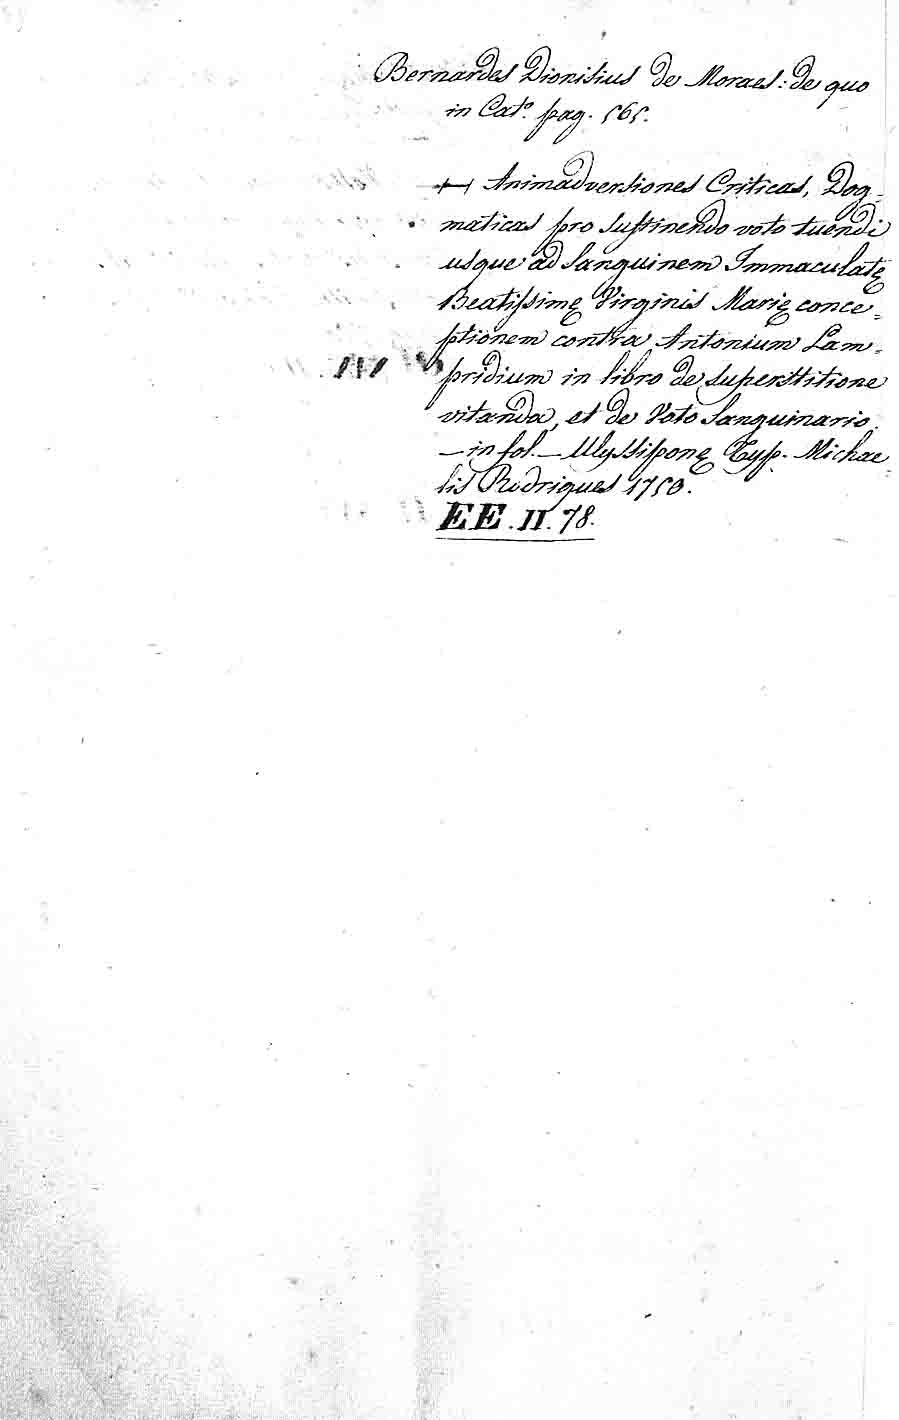 Bernardes Dionisius de Moraes: de quo
in Cat.º pag. 565.
+ Animadversiones Criticas, Dog-
maticas pro sustinendo voto tuendi
usque ad Sanguinem Immaculatę
Beatissimę Virginis Marię conce=
ptionem contra Antonium Lam=
pridium in libro de superstitione
vitanda, et de Voto Sanguinario.
— in fol. — Ulyssiponę Typ. Michae
lis Rodrigues 1750.
EE. II. 78.